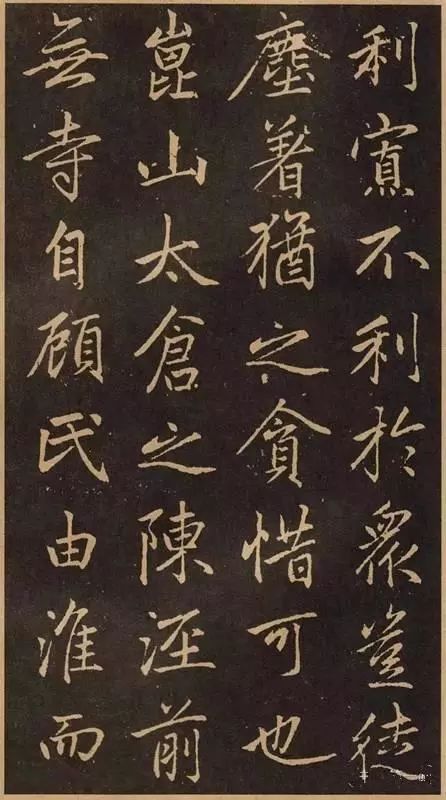 利寘不利於衆豈徒
塵着猶之貪惜可也
崑山太倉之陳涇前
無寺自顧氏由淮而